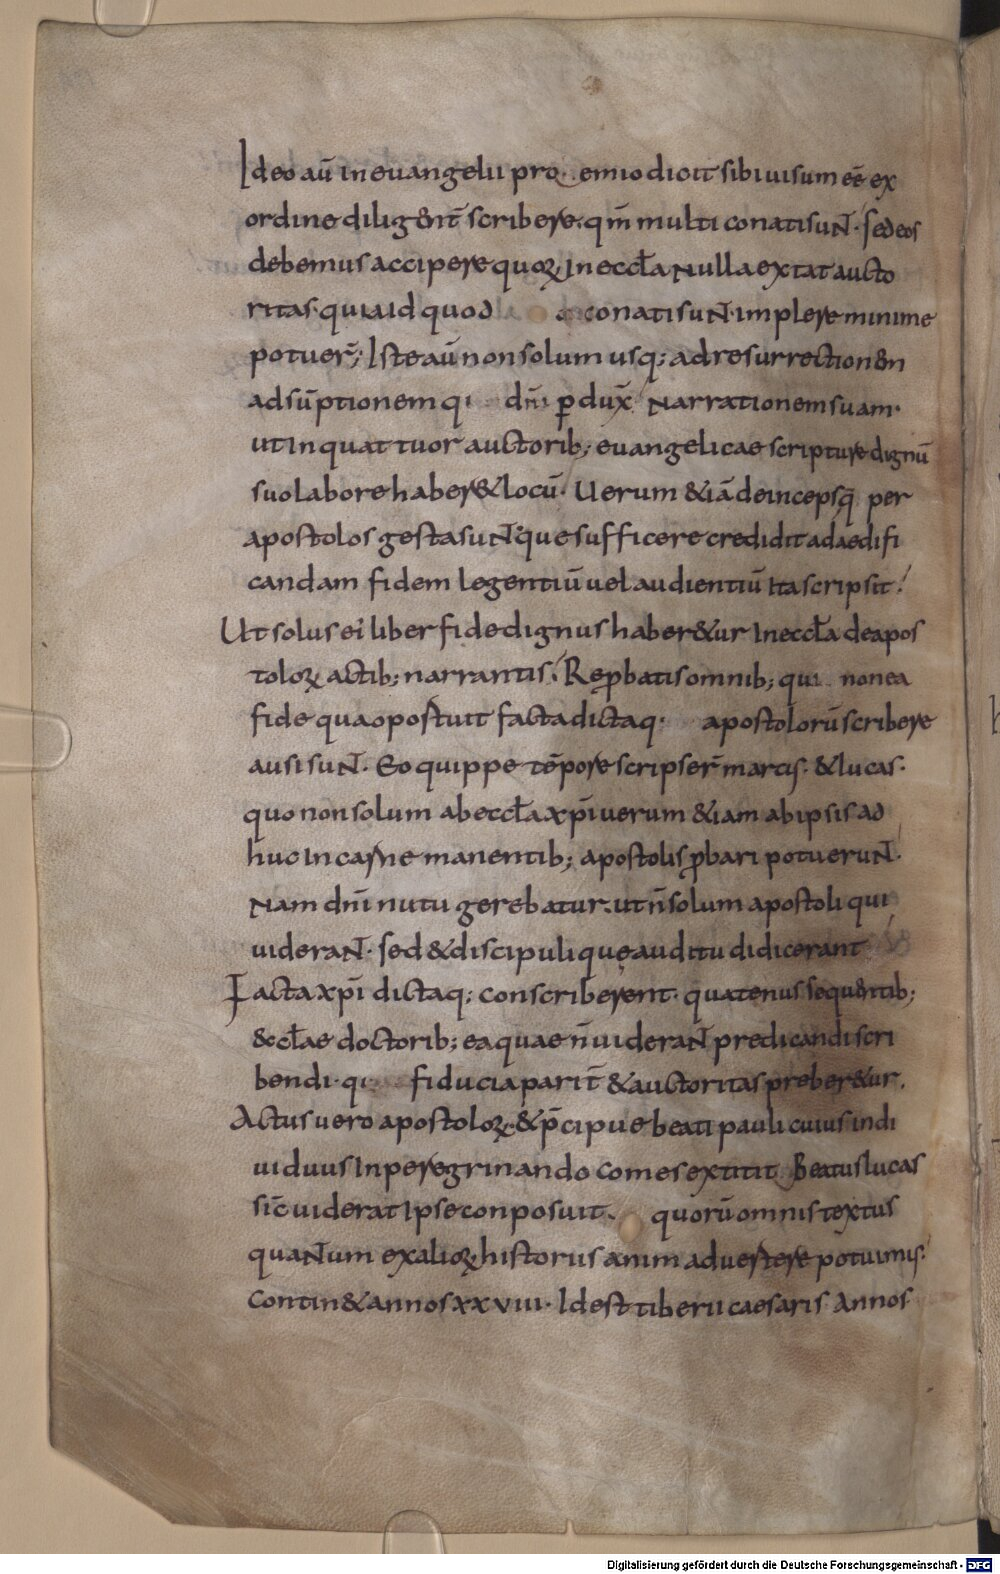 Ideo aū in euangelii pro emio dicit sibi uisum eē ex
ordine diligent̄ scribere. qm̄ multi conati sunt̄. sed eos
debemus accipere quoꝝ in eccła nulla extat aucto
ritas. quia id quod conati sunt̄. implere minime
potuer̄; Iste aū non solum usq; ad resurrectionen
adsūptionem q dn̄i ꝑdux̄ narrationem suam.
ut in quattuor auctorib; euangelicae scripture dignū
suo labore haber& locū. Uerum &iā deinceps q̄ per
apostolos gesta sunt̄ que sufficere credidit ad aedifi
candam fidem legentiū uel audientiū Ita scripsit.
Ut solus ei liber fide dignus haber&ur in eccła de apos
toloꝝ actib; narrantis. Reprobatis omnib; qui non ea
fide qua opostuit facta dictaq apostolorū scribere
ausi sunt̄. Eo quippe tēpore scripser̄ marcus. & lucas.
quo non solum ab eccła xp̄i uerum &iam ab ipsis ad
huc in carne manentib; apostolis ꝓbari potuerunt̄.
Nam dn̄i nutu gerebatur. ut n̄ solum apostoli qui
uiderant̄. sed & discipuli quę auditu didicerant
Facta xp̄i dictaq; conscriberent. quatenus sequentib;
&cłae doctorib; ea quae n̄ uiderant̄ predicandi scri
bendi. q fiducia parit̄ & auctoritas preber&ur.
Actus uero apostoloꝝ. & p̄cipue beati pauli cuius indi
uiduus in peregrinando comes extitit Beatus lucas
sic̄ uiderat ipse conposuit. quorū omnis textus
quantum ex alioꝝ historiis anim aduertere potuimus.
Contin& annos xxviii. Id est tiberii caesaris Annos
Digitalisierung gefördert durch die Deutsche Forschungsgemeinschaft - DFG